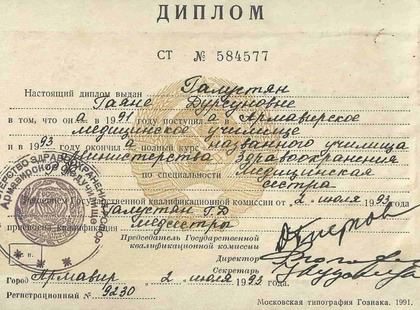 ДИПЛОМ
СТ № 584577
Настоящий диплом выдан Галустян
Гаяне Дурсуновне
в том, что он а в 1991 году поступил а в Армавирское
медицинское училище
и в 1993 году окончил а полный курс названного училища
Министерства Здравоохранения
по специальности Медицинская
сестра
Решением Государственной квалификационной комиссии от 2 июля 1993 года
Галустян Г.Д.
присвоена квалификация медсестра
Председатель Государственной
квалификационной комиссии
Директор
Секретарь
Город Армавир 2 июля 1993 года.
Регистрационный № 9230
Московская типография Гознака. 1991.